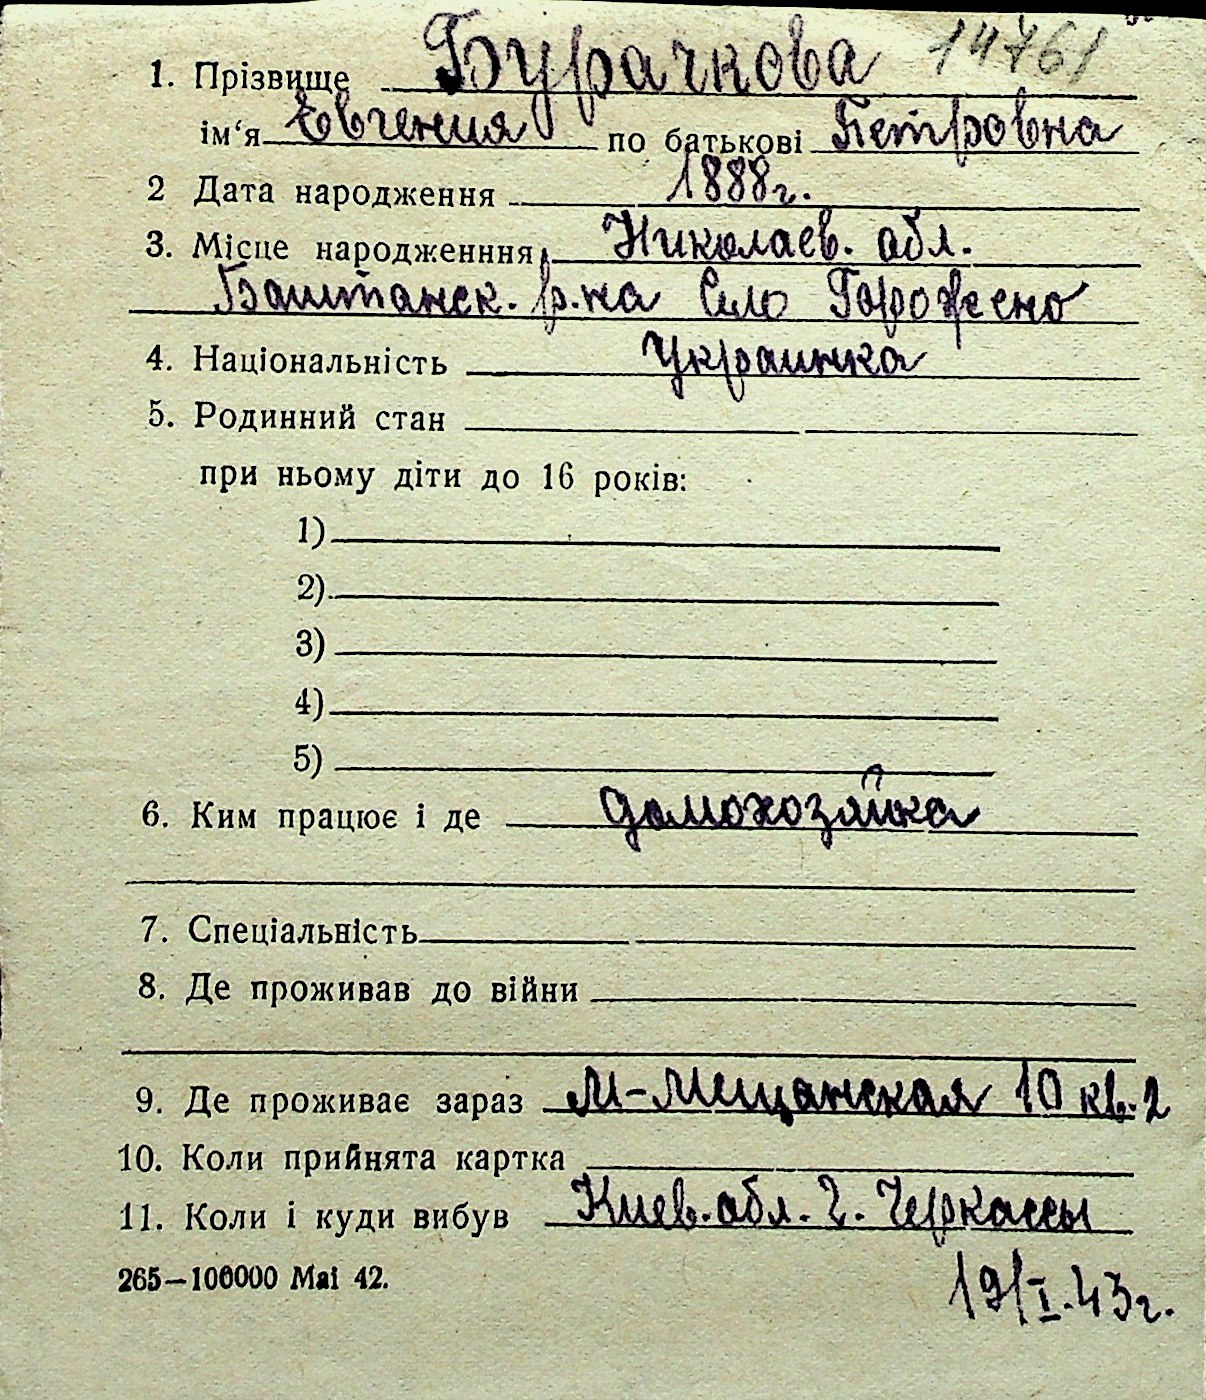 14761
1. Прізвище Бурачкова
ім'я Евгения по батькові Петровна
2 Дата народження 1888г.
3. Місце народженння, Николаев. обл.
Баштанск. р-на Село Горожено
4. Національність Украинка
5. Родинний стан
при ньому діти до 16 років:
1)
2)
3)
4)
5)
6. Ким працює і де домохозяйка
7. Спеціальність
8. Де проживав до війни
9. Де проживає зараз М-Мещанская 10 кв. 2
10. Коли прийнята картка
11. Коли і куди вибув Киев. обл. г. Черкассы
265—100000 Mai 42.
19/I.43г.